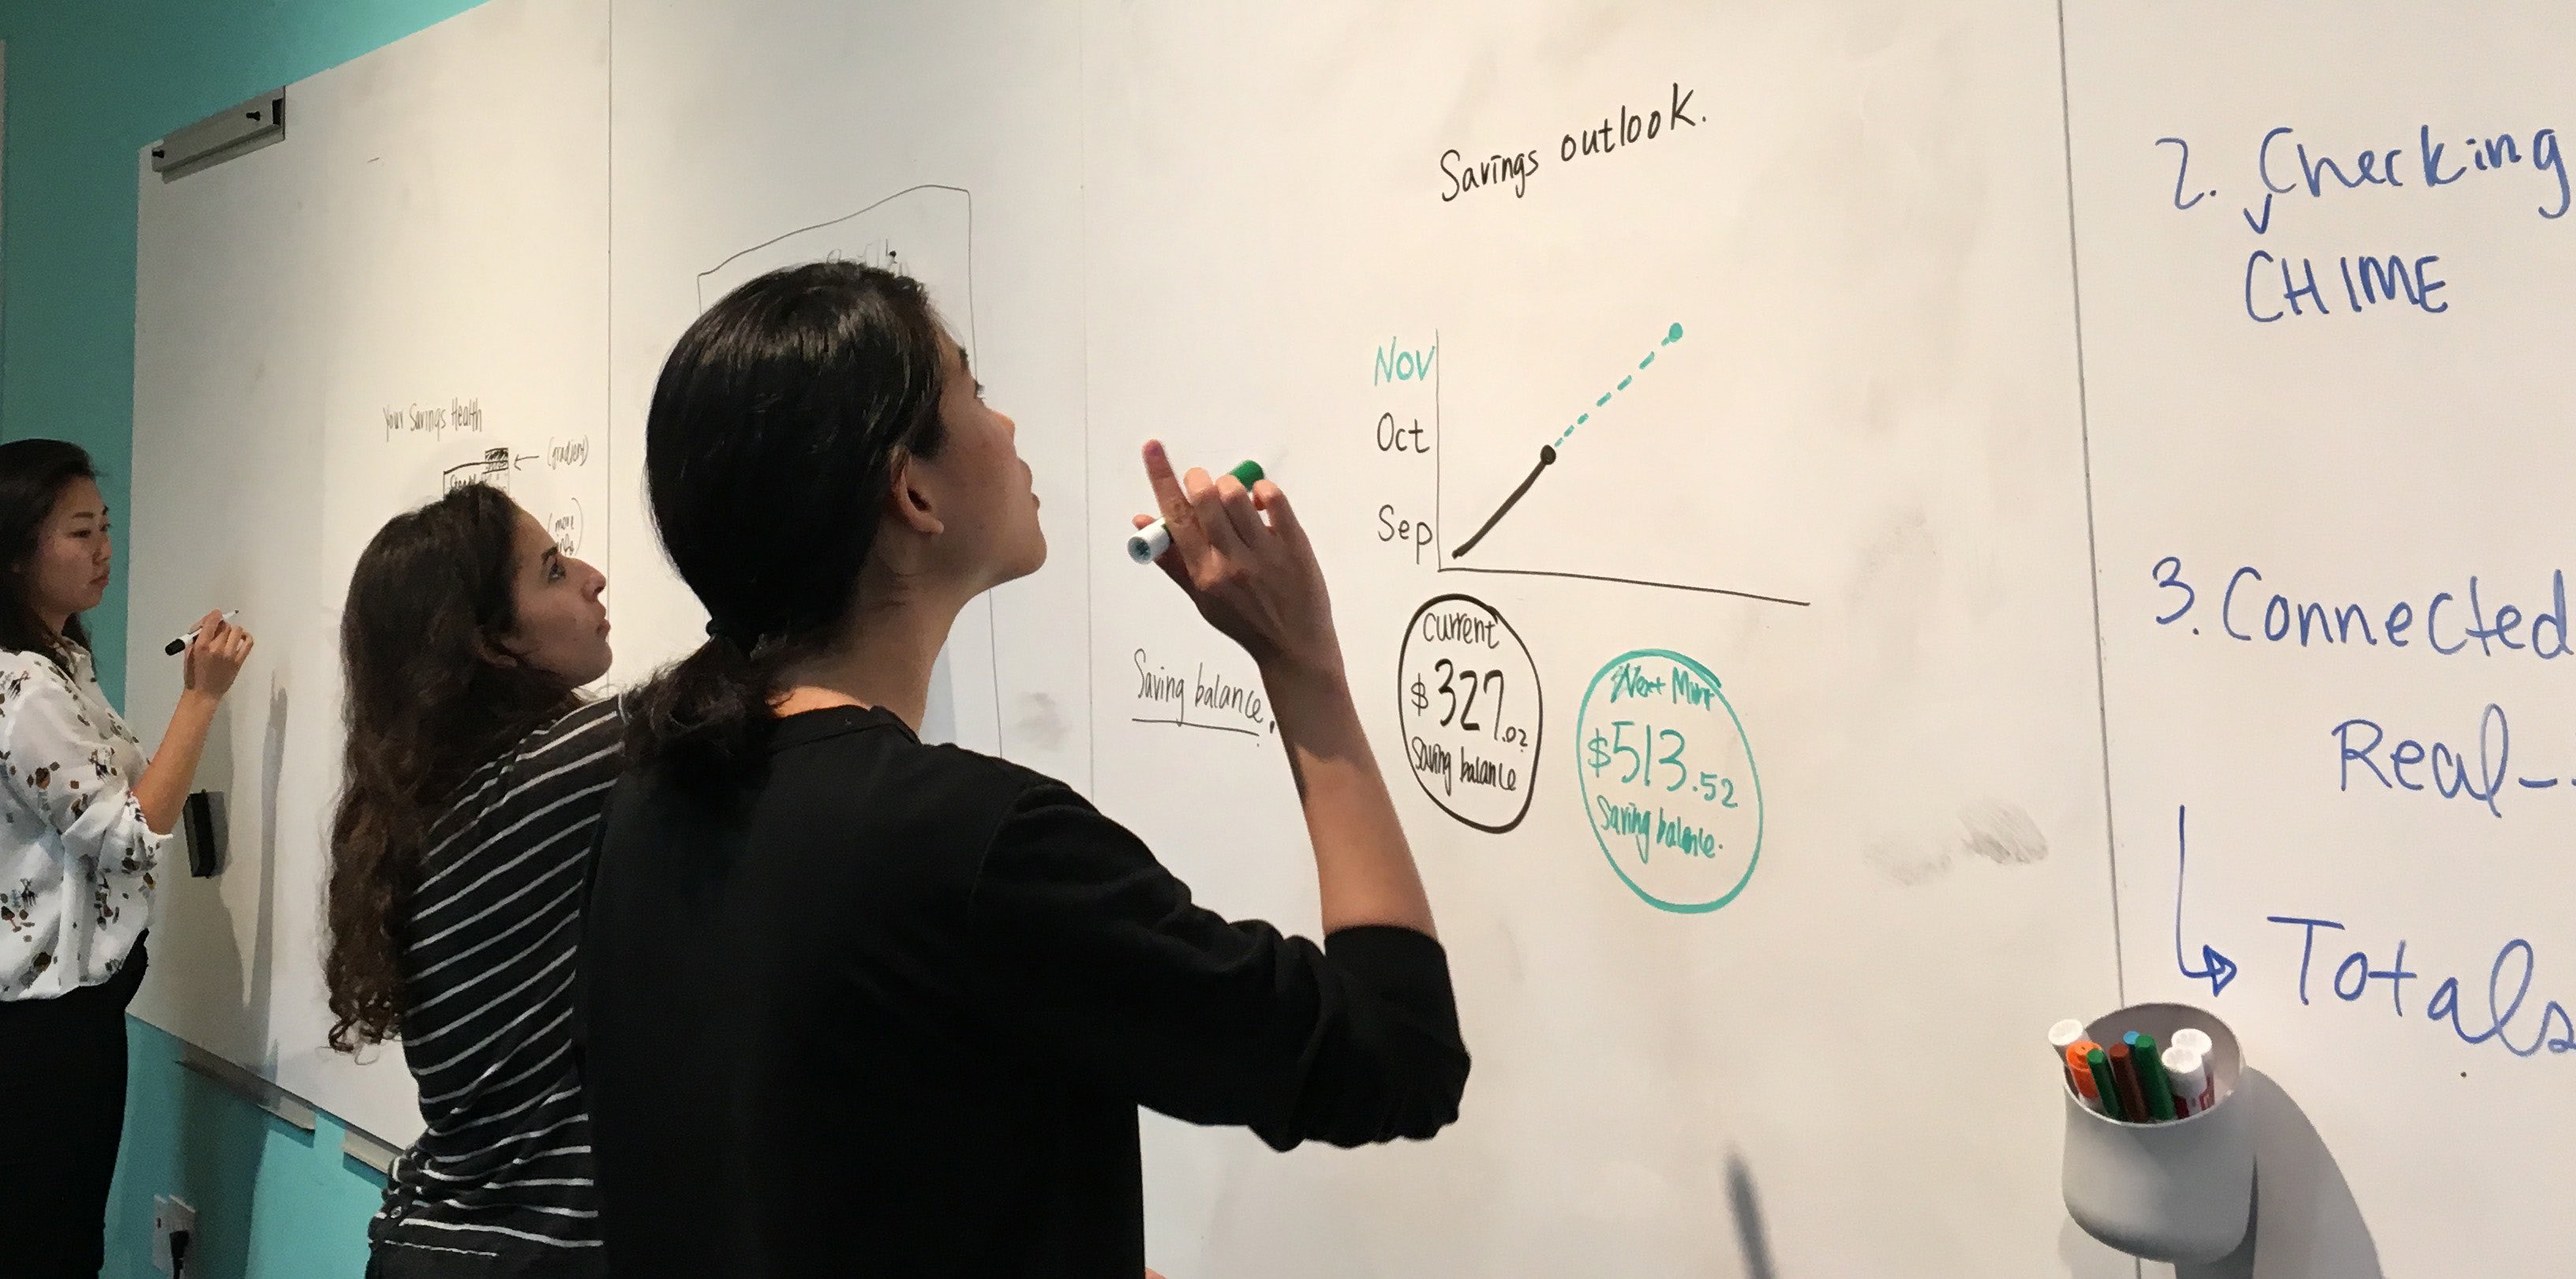 Your Savings Health
(gradient)
(more
Saving balance.
Savings outlook.
Nov
Oct
Sep
Current
$327.02
Saving balance
Next
$513.52
Saving balance.
2. Checking
CHIME
3. Connected
Real-
Totals